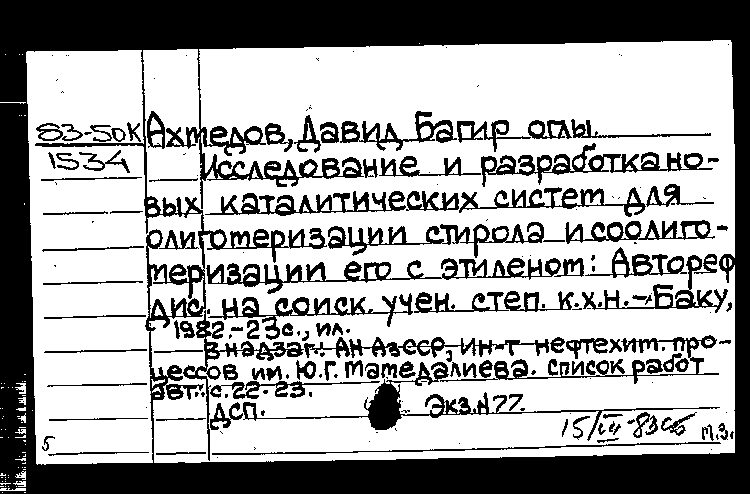 83-50К Ахмедов, Давид Багир оглы.
1534 Исследование и разработка но-
вых каталитических систем для
олигомеризации стирола и соолиго-
меризации его с этиленом: Автореф
дис. на соиск. учен. степ. к.х.н. - Баку,
1982.-23с., ил.
В надзаг.: АН АзССР, Ин-т нефтехим. про-
цессов им. Ю.Г. Мамедалиева. Список работ
авт.: с. 22-23.
ДСП. Экз.N77.
5 15/III-83 М.З.